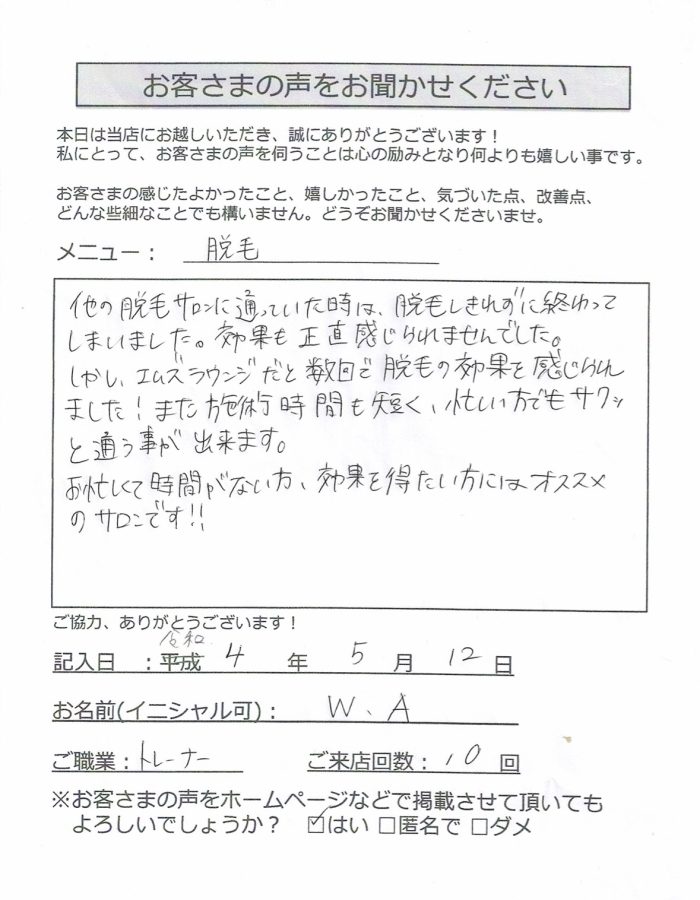 お客さまの声をお聞かせください
本日は当店にお越しいただき、誠にありがとうございます！
私にとって、お客さまの声を伺うことは心の励みとなり何よりも嬉しい事です。
お客さまの感じたよかったこと、嬉しかったこと、気づいた点、改善点、
どんな些細なことでも構いません。どうぞお聞かせくださいませ。
メニュー： 脱毛
他の脱毛サロンに通っていた時は、脱毛しきれずに終わって
しまいました。効果も正直感じられませんでした。
しかし、エムズラウンジだと数回で脱毛の効果を感じられ
ました！また施術時間も短く、忙しい方でもサクッ
と通う事が出来ます。
お忙しくて時間がない方、効果を得たい方にはオススメ
のサロンです!!
ご協力、ありがとうございます！
令和
記入日 ：平成 4 年 5 月 12 日
お名前(イニシャル可)： W、A
ご職業：トレーナー ご来店回数：10 回
※お客さまの声をホームページなどで掲載させて頂いても
よろしいでしょうか？ ☑はい □匿名で □ダメ